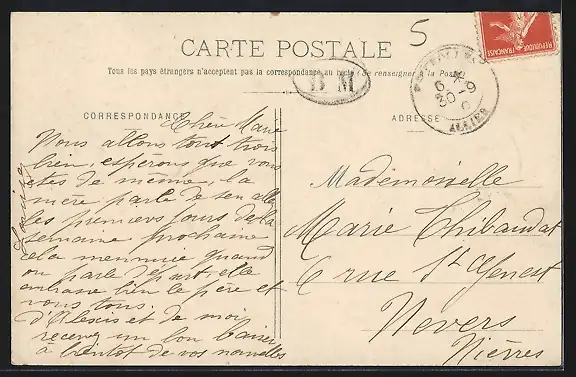 5
CARTE POSTALE
Tous les pays étrangers n'acceptent pas la correspondance au recto (Se renseigner à la Poste)
B M
REPUBLIQUE FRANÇAISE
6 30
ALLIER
CORRESPONDANCE
ADRESSE
Chère Marie
Nous allons tout trois
bien, esperons que vous
etes de même, la
mere parle de sen aller
les premiers jours de la
semaine prochaine
cela mennuie quand
on parle de part, elle
embrasse bien le père et
vous tous.
d'Alexis et de moi
recevez un bon baiser
à bientot de vos nouvelles
Louise
Mademoiselle
Marie Thibaudat
6 rue St Genest
Nevers
Nièvres